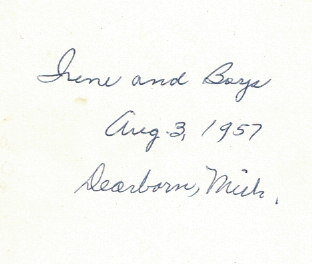 Irene and Boys
Aug. 3, 1957
Dearborn, Mich.